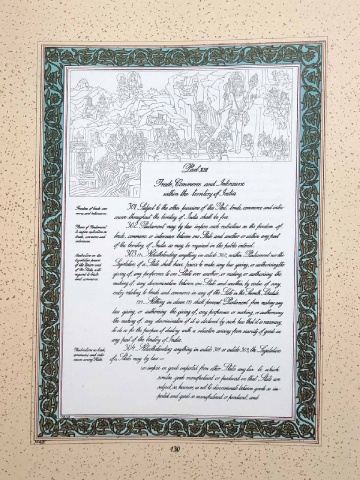 Part XIII
Trade, Commerce and Intercourse
within the territory of India
Freedom of trade, com-
merce and intercourse.
301. Subject to the other provisions of this Part, trade, commerce and inter-
course throughout the territory of India shall be free.
Power of Parliament
to impose restrictions on
trade, commerce and
intercourse.
302. Parliament may by law impose such restrictions on the freedom of
trade, commerce or intercourse between one State and another or within any part
of the territory of India as may be required in the public interest.
Restrictions on the
legislative powers
of the Union and
of the States with
regard to trade
and commerce.
303. (1) Notwithstanding anything in article 302, neither Parliament nor the
Legislature of a State shall have power to make any law giving, or authorising the
giving of, any preference to one State over another, or making, or authorising the
making of, any discrimination between one State and another, by virtue of any
entry relating to trade and commerce in any of the Lists in the Seventh Schedule.
(2) Nothing in clause (1) shall prevent Parliament from making any
law giving, or authorising the giving of, any preference or making, or authorising
the making of, any discrimination if it is declared by such law that it is necessary
to do so for the purpose of dealing with a situation arising from scarcity of goods in
any part of the territory of India.
Restrictions on trade,
commerce and inter-
course among States.
304. Notwithstanding anything in article 301 or article 303, the Legislature
of a State may by law —
(a) impose on goods imported from other States any tax to which
similar goods manufactured or produced in that State are
subject, so, however, as not to discriminate between goods so im-
ported and goods so manufactured or produced; and
130